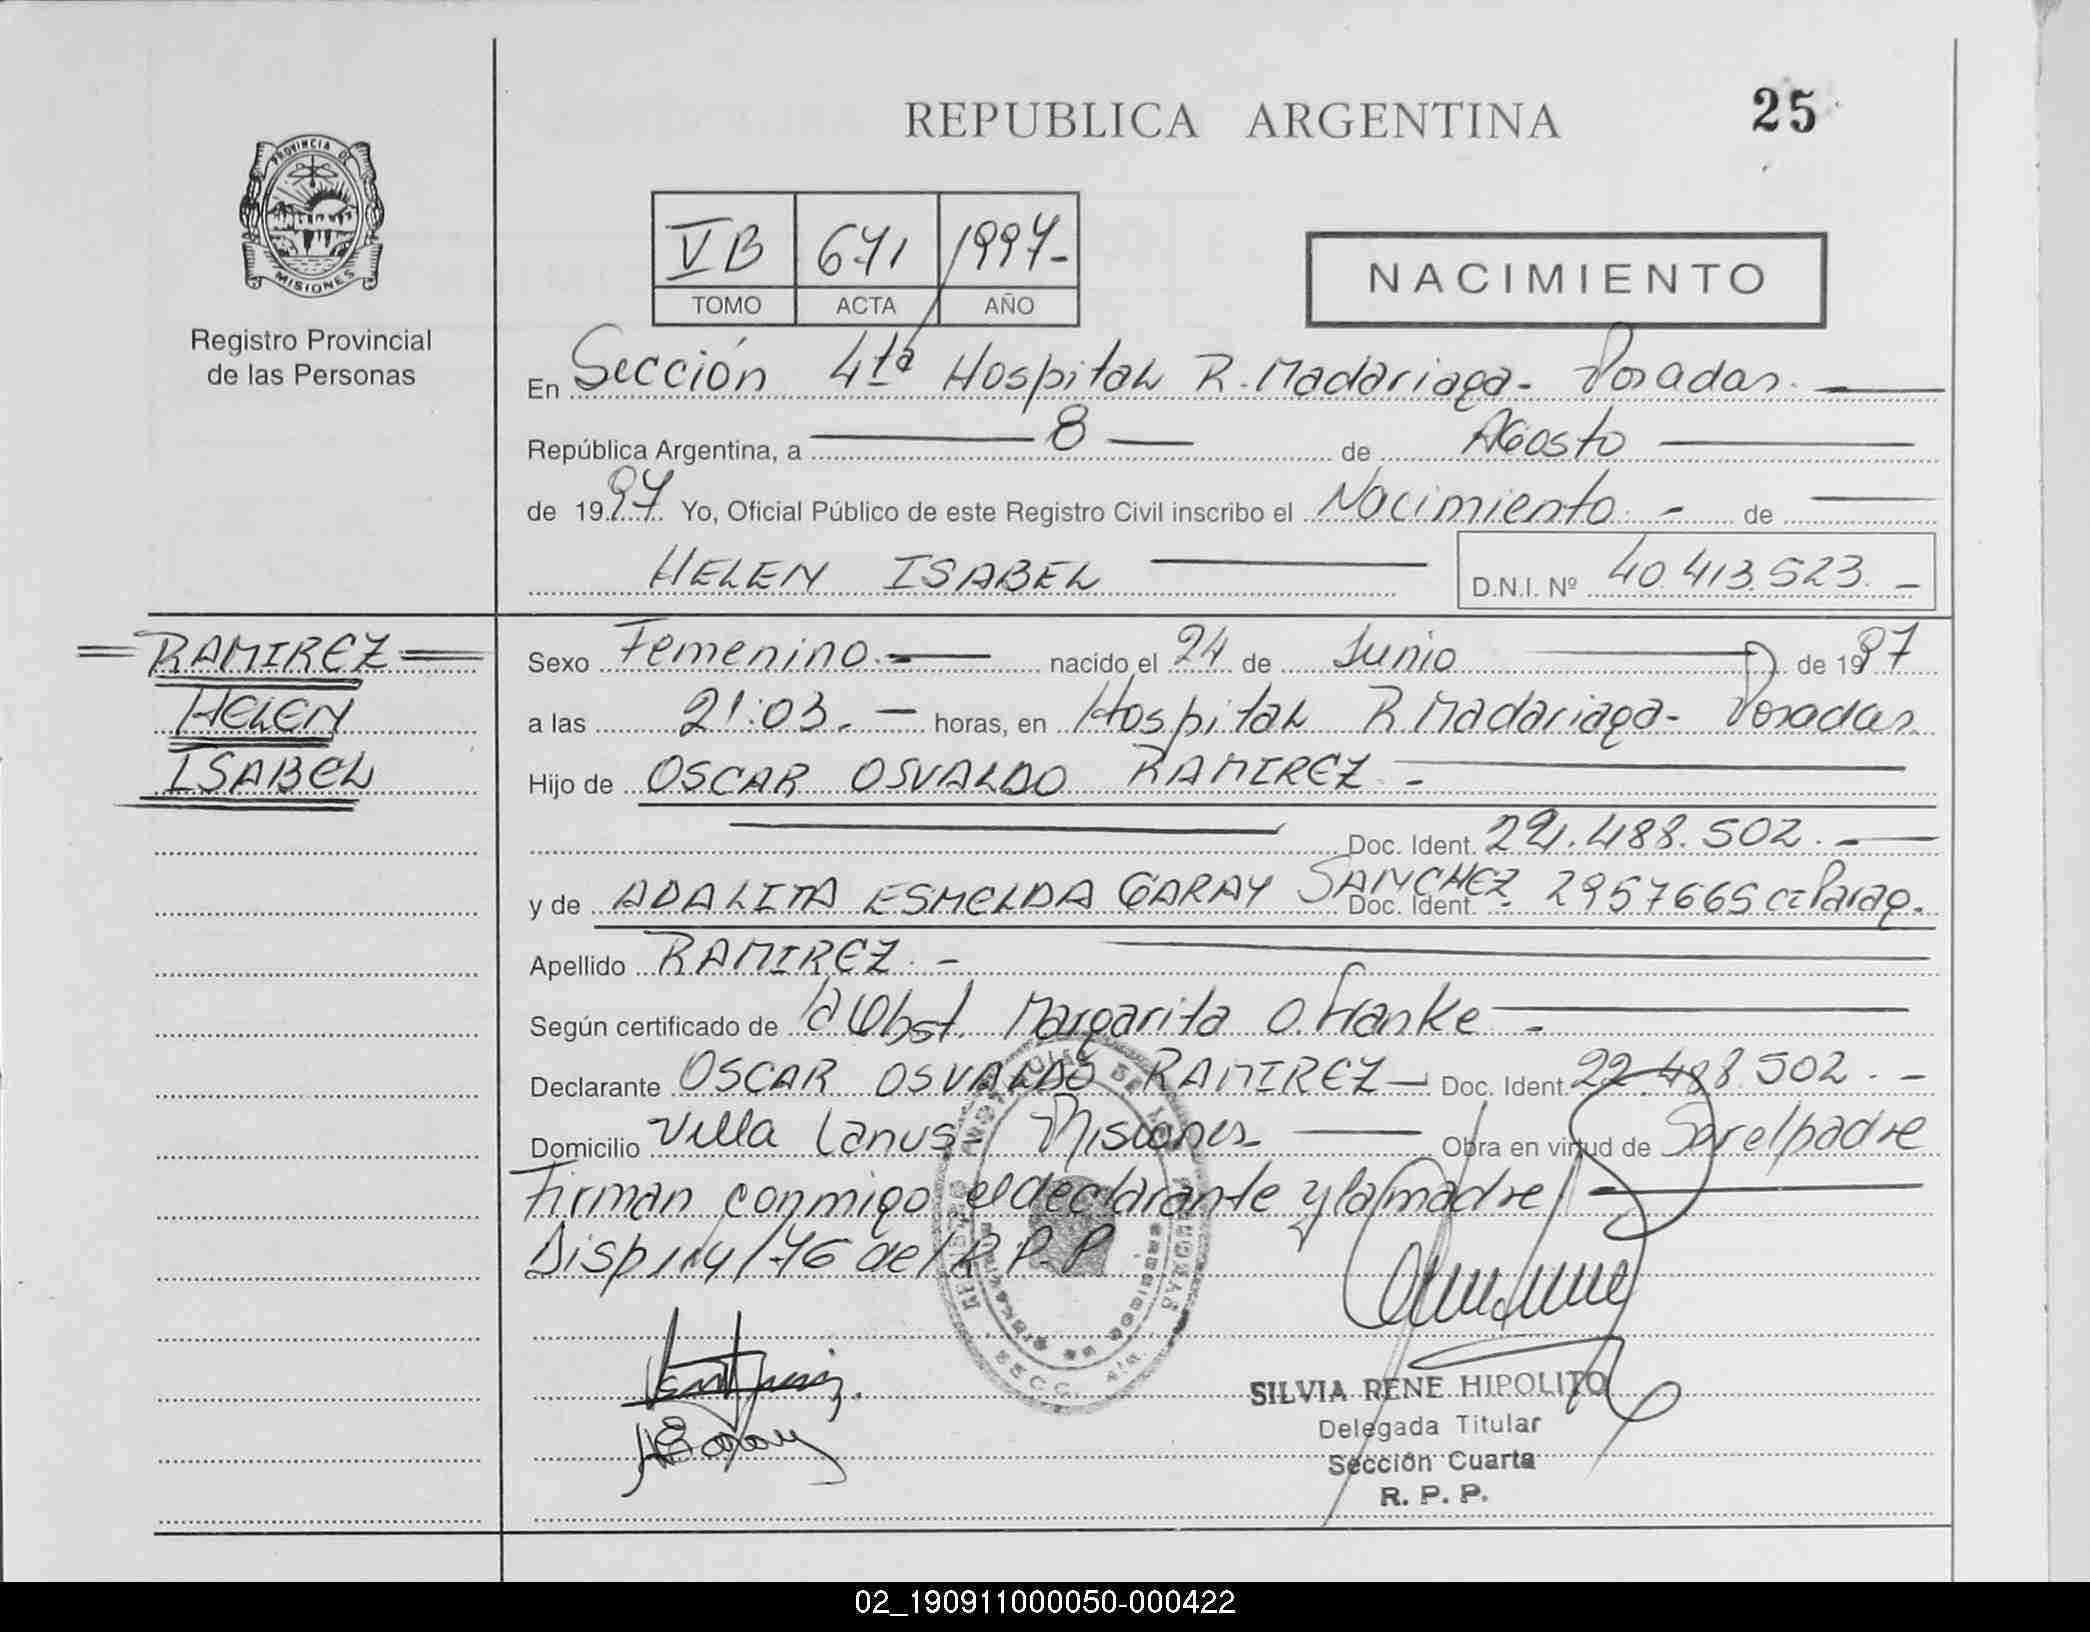 REPUBLICA ARGENTINA
25
PROVINCIA DE
MISIONES
Registro Provincial
de las Personas
VB 671 1997-
TOMO ACTA AÑO
NACIMIENTO
En Sección 4ta Hospital R. Madariaga- Posadas.
República Argentina, a 8 de Agosto
de 1997 Yo, Oficial Público de este Registro Civil inscribo el Nacimiento - de
HELEN ISABEL D.N.I. Nº 40.413.523.-
RAMIREZ
HELEN
ISABEL
Sexo Femenino.- nacido el 24 de Junio de 1997
a las 21:03.- horas, en Hospital R. Madariaga- Posadas.
Hijo de OSCAR OSVALDO RAMIREZ -
Doc. Ident. 22.488.502.-
y de ADALITA ESMELDA GARAY SANCHEZ Doc. Ident. 2957665 ci Parag.
Apellido RAMIREZ.-
Según certificado de la Obst. Margarita O. Franke -
Declarante OSCAR OSVALDO RAMIREZ- Doc. Ident. 22.488.502.-
Domicilio Villa Lanus- Misiones Obra en virtud de Ser el padre
Firman conmigo el declarante y la madre
Disp 114/76 del R.P.P
SILVIA RENE HIPOLITO
Delegada Titular
Sección Cuarta
R. P. P.
02_190911000050-000422